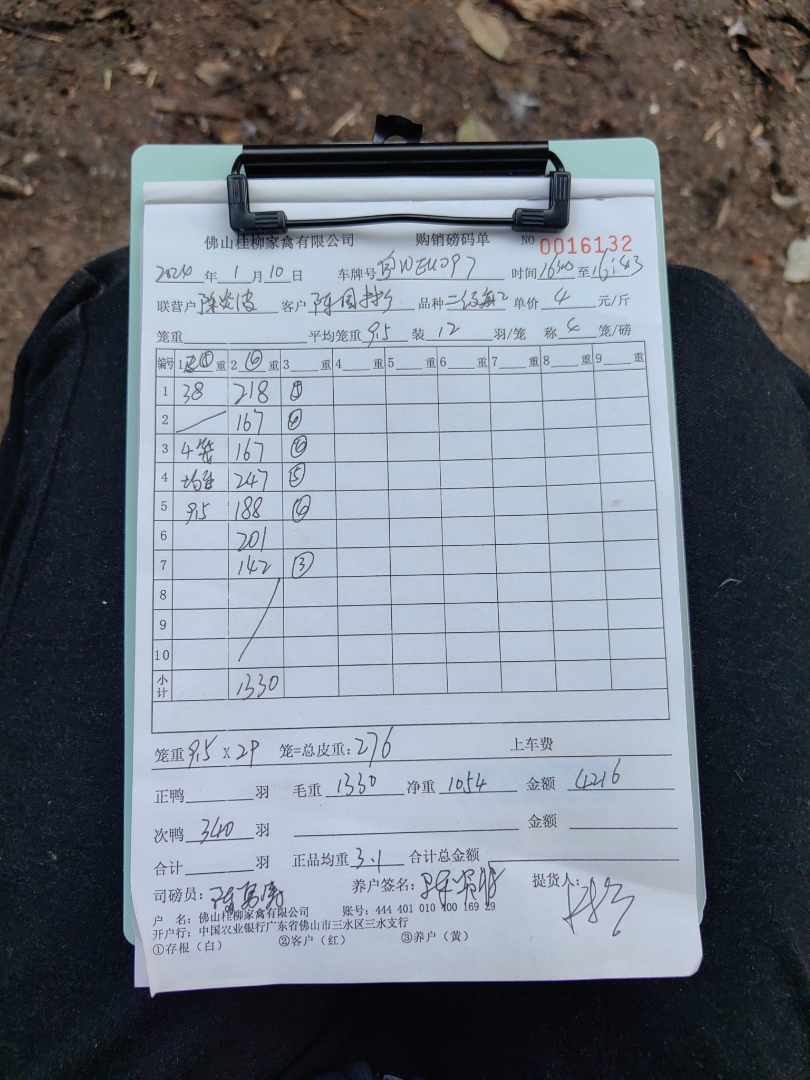 佛山桂柳家禽有限公司 购销磅码单 NO 0016132
2024 年 1 月 10 日 车牌号 时间 至 16:43
联营户 客户 陈国 品种 二级 单价 4 元/斤
笼重 平均笼重 9.5 装 12 羽/笼 称 4 笼/磅
编号 1 重 2 ⑥ 重 3 重 4 重 5 重 6 重 7 重 8 重 9 重
1 38 218
2 167
3 4笼 167 ⑥
4 均重 247 ⑤
5 9.5 188
6 201
7 142 ③
8
9
10
小计 1330
笼重 9.5 X 29 笼=总皮重: 276 上车费
正鸭 羽 毛重 1330 净重 1054 金额 4216
次鸭 340 羽 金额
合计 羽 正品均重 3.1 合计总金额
司磅员: 养户签名: 提货人:
户 名: 佛山桂柳家禽有限公司 账号: 444 401 010 400 169 29
开户行: 中国农业银行广东省佛山市三水区三水支行
①存根（白） ②客户（红） ③养户（黄）